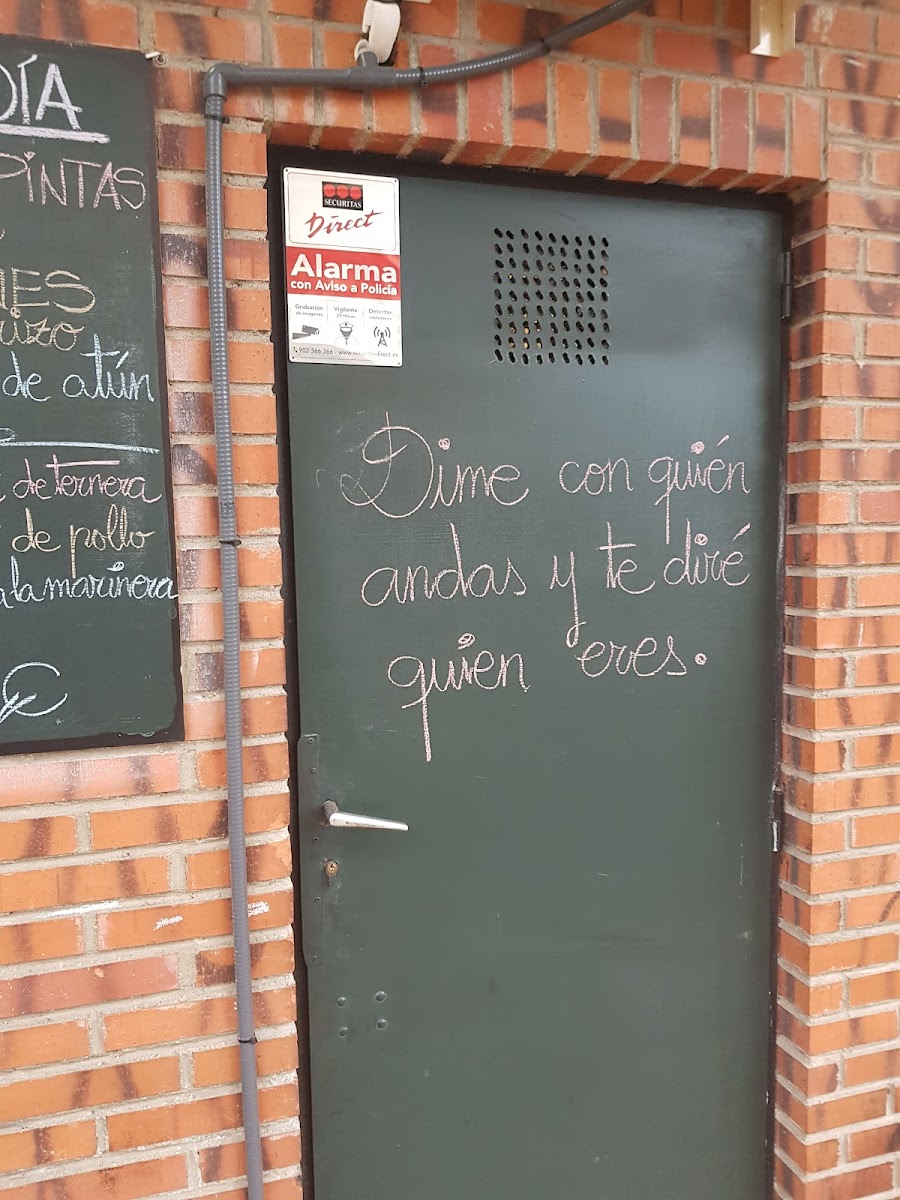 DÍA
PINTAS
de atún
de ternera
de pollo
a la marinera
SECURITAS
Direct
Alarma
con Aviso a Policía
Grabación de imágenes
Vigilante 24 Horas
Detector
902 366 366 - www.securitasdirect.es
Dime con quién
andas y te diré
quien eres.